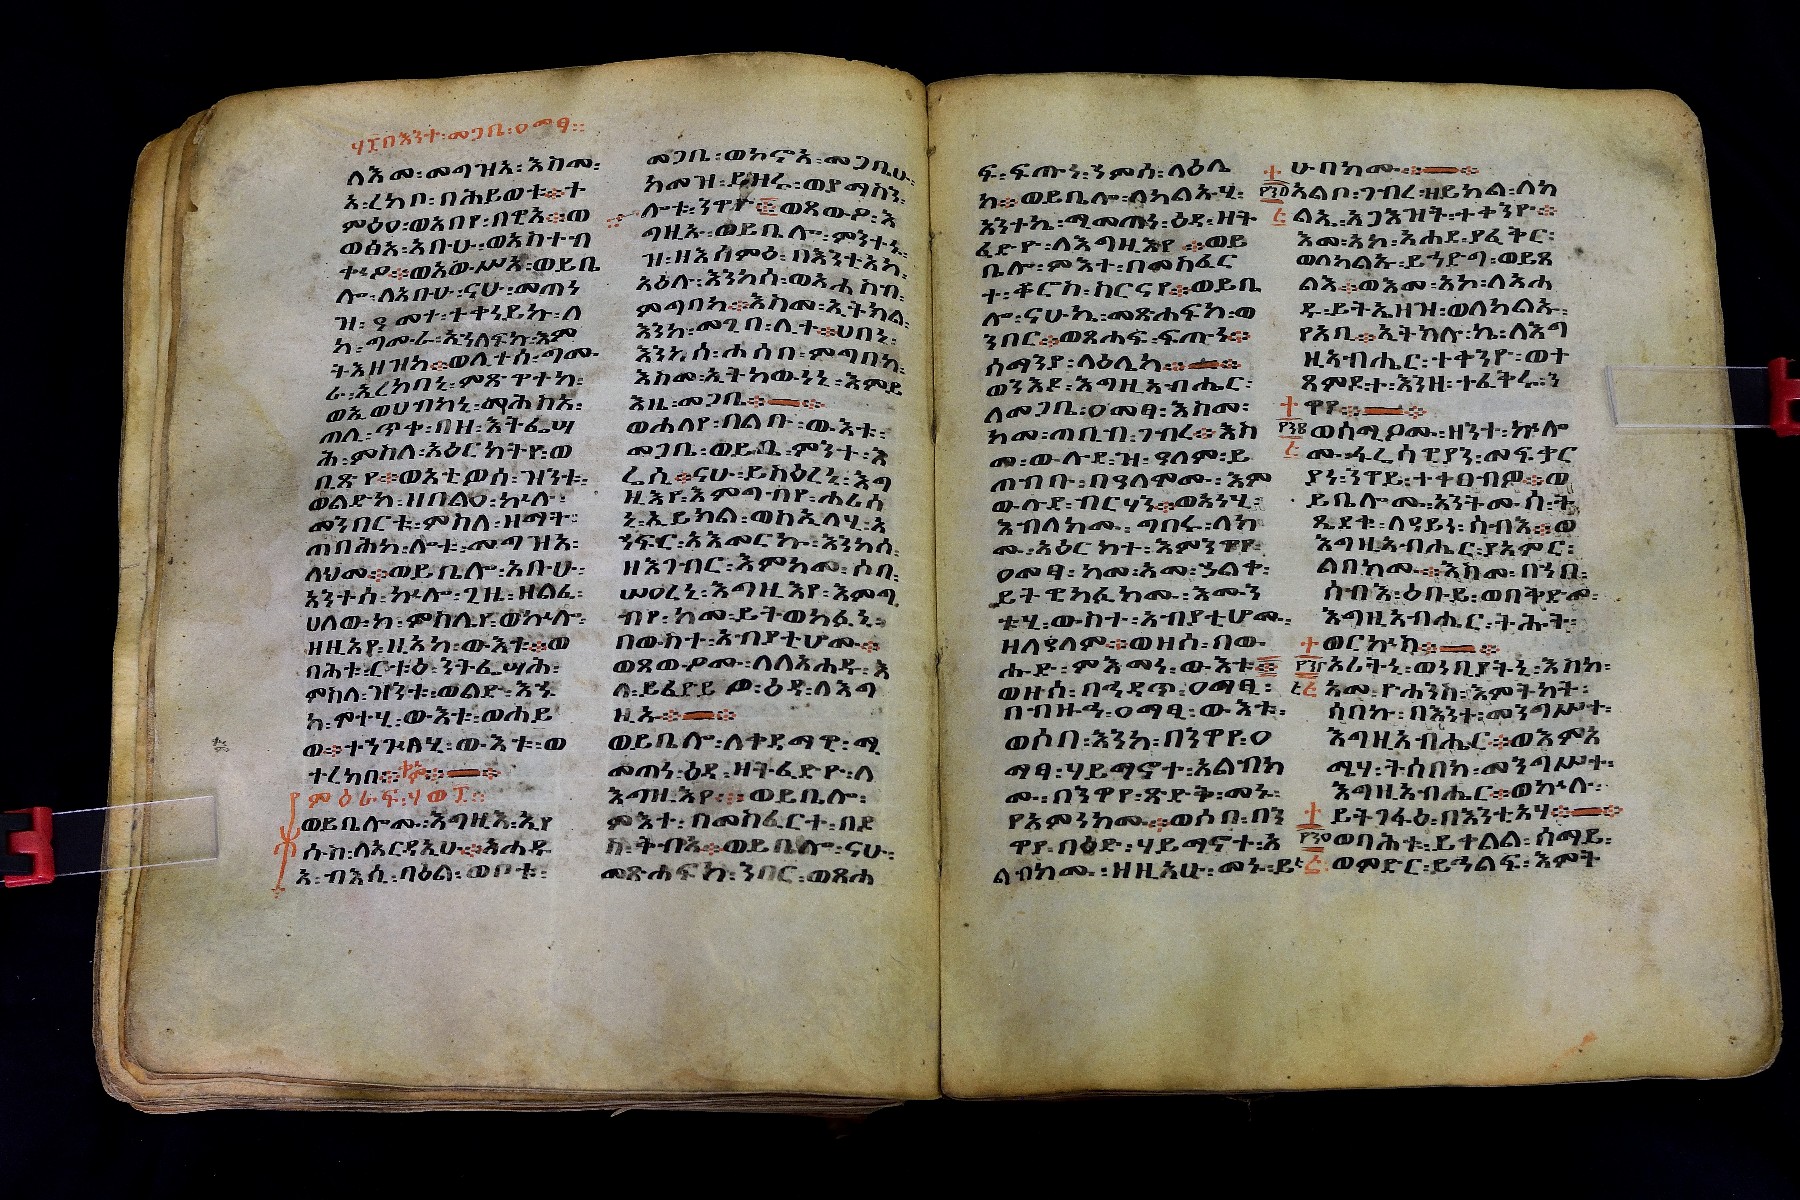 ፶፤በእንተ፡መጋቢ፡ዐመፃ፡፡
ለእመ፡መግዝአ፡እስመ፡
አ፡ረከበ፡በሕይወቱ፨ተ
ምዕዐ፡ወአበየ፡በዊአ፨ወ
ወፅአ፡አቡሁ፡ወአስተብ
ቍዖ፨ወአውሥአ፡ወይቤ
ሎ፡ለአቡሁ፡ናሁ፡መጠነ
ዝ፡ዓመተ፡ተቀነይኩ፡ለ
ከ፡ግሙራ፡አኀለፍኩ፡እም
ትእዘዝከ፨ወሊተሰ፡ግሙ
ራ፡እረከበኒ፡ምጽዋተከ፡
ወኢወሀብከኒ፡ማሕስአ፡
ጠሊ፡ጥቀ፡በዘ፡እትፌሣ
ሕ፡ምስለ፡አዕርክትየ፡ወ
ቢጽየ፨ወእቲዖሰ፡ዝንቱ፡
ወልድከ፡ዘበልዐ፡ኵሎ፡
መንበርቱ፡ምስለ፡ዘማት፡
ጠበሕከ፡ሎቱ፡መግዝአ፡
ላህመ፨ወይቤሎ፡አቡሁ፡
አንተሰ፡ኵሎ፡ጊዜ፡ዘልፈ፡
ሀለውከ፡ምስሌየ፡ወኵሎ፡
ዘዚአየ፡ዚአከ፡ውእቱ፨ወ
በሕቱ፡ርቱዕ፡ንትፌሣሕ፡
ምስለ፡ዝንቱ፡ወልድ፡እኁ
ከ፡ሞተሂ፡ውእቱ፡ወሐይ
ወ፡፡ተኀጕለሂ፡ውእቱ፡ወ
ተረክበ፨
ምዕራፍ፡፶ወ፩፡፡
ወይቤሎሙ፡እግዚእ፡ኢየ
ሱስ፡ለአርዳኢሁ፨አሐዱ
አ፡ብእሲ፡ባዕል፡ወቦቱ፡
መጋቢ፡ወኮኖአ፡መጋቢሁ፡
ከመዝ፡ይዘሩ፡ወያማስን፡
ሎቱ፡ንዋዮ፨ወጸውዖ፡እ
ግዚኡ፡ወይቤሎ፡ምንተኑ፡
ዝ፡ዘእሰምዕ፡በእንተአከ፡
አዕሉ፡እንከሰ፡ወአሐስብ፡
ምግባከ፨እስመ፡ኢትክል፡
እንከ፡መጊበ፡ሊተ፨ሀበኒ፡
እንከሰ፡ሐሰበ፡ምግብከ፡
እስመ፡ኢትከውነኒ፡እምይ
እዜ፡መጋቢ፨
ወሐለየ፡በልቡ፡ውእቱ፡
መጋቢ፡ወይቤ፡ምንተ፡እ
ሬሲ፨ናሁ፡ይስዕረኒ፡እግ
ዚእየ፡እምግብየ፡ሐሪሰ
ኒ፡ኢይክል፡ወስኢለሂ፡አ
ኀፍር፡አእመርኩ፡እንከሰ፡
ዘእገብር፡እምከመ፡ሶበ፡
ሠዐረኒ፡እግዚእየ፡እምግ
ብየ፡ከመ፡ይትወከፉኒ፡
በውስተ፡አብያቲሆሙ፨
ወጸውዖሙ፡ለለአሐዱ፡እ
ለ፡ይፈድይዎ፡ዕዳ፡ለእግ
ዚኡ፨
ወይቤሎ፡ለቀዳማዊ፡ሚ
መጠነ፡ዕዳ፡ዘትፈድዮ፡ለ
እግዚእየ፡፡ወይቤሎ፡
ምእተ፡በመስፈርተ፡በደ
ስ፡ቅብእ፨ወይቤሎ፡ናሁ፡
መጽሐፍከ፡ንበር፡ወጸሐ
ፍ፡ፍጡነ፡ኀምሳ፡ለዕሌ
ከ፨ወይቤሎ፡ለካልኡሂ፡
አንተኬ፡ሚመጠነ፡ዕዳ፡ዘት
ፈድዮ፡ለእግዚእየ፡፡ወይ
ቤሎ፡ምእተ፡በመስፈር
ተ፡ቆሮስ፡ስርናየ፨ወይቤ
ሎ፡ናሁኬ፡መጽሐፍከ፡ወ
ንበር፨ወጸሐፍ፡ፍጡነ፨
ሰማንያ፡ለዕሌከ፨
ወንእዶ፡እግዚአብሔር፡
ለመጋቢ፡ዐመፃ፡እስመ፡
ከመ፡ጠቢብ፡ገብረ፨እስ
መ፡ውሉደ፡ዝ፡ዓለም፡ይ
ጠብቡ፡በዓለሞሙ፡እም
ውሉደ፡ብርሃን፨ወአነሂ፡
እብለክሙ፡ግበሩ፡ለክ
ሙ፡አዕርክተ፡እምንዋየ፡
ዐመፃ፡ከመ፡አመ፡ኃልቀ፡
ይትዌከፉክሙ፡እሙን
ቱሂ፡ውስተ፡አብያቲሆሙ፡
ዘለዓለም፨ወዘሰ፡በው
ሑድ፡ምእመነ፡ውእቱ፨
ወዘሰ፡በኁዳጥ፡ዐማፂ፡
በብዙኅ፡ዐማፂ፡ውእቱ፡
ወሶበ፡እንከ፡በንዋየ፡ዐ
ማፃ፡ሃይማኖተ፡አልብክ
ሙ፡በንዋየ፡ጽድቅ፡መኑ፡
የአምነክሙ፨ወሶበ፡በን
ዋየ፡ባዕድ፡ሃይማኖተ፡አ
ልብክሙ፡ዘዚአሁ፡መኑ፡ይ
ሁበክሙ፨
አልቦ፡ገብረ፡ዘይክል፡ለክ
ልኤ፡አጋእዝት፡ተቀንዮ፨
እመ፡አኮ፡አሐደ፡ያፈቅር፡
ወለካልኡ፡ይኀድግ፡ወይጸ
ልእ፨ወእመ፡አኮ፡ለአሐ
ዱ፡ይትኤዘዝ፡ወለካልኡ፡
የአቢ፨ኢትክሉ፡ኬ፡ለእግ
ዚአብሔር፡ተቀንዮ፡ወት
ጸምዶተ፡እንዘ፡ተፈቅሩ፡ን
ዋየ፨
ወሰሚዖሙ፡ዘንተ፡ኵሎ
ሙ፡ፈሪሳዊያን፡መፍቀር
ያነ፡ንዋይ፡ተቀፀብዎ፨ወ
ይቤሎሙ፡አንትሙሰ፡ት
ጼደቁ፡ለዓይነ፡ሰብእ፨ወ
እግዚአብሔር፡ያአምር፡
ልበክሙ፨እስመ፡በኀበ፡
ሰብእ፡ዕቡይ፡ወበቅድመ፡
እግዚአብሔር፡ትሑት፡
ወርኩስ፨
አሪትኒ፡ወነቢያትኒ፡እስከ፡
አመ፡ዮሐንስ፡እምትካት፡
ሰበኩ፡በእንተ፡መንግሥተ፡
እግዚአብሔር፨ወእምአ
ሜሃ፡ትሰበክ፡መንግሥተ፡
እግዚአብሔር፨ወኵሎ፡
ይትገፋዕ፡በእንቲአሃ፨
ወባሕቱ፡ይቀልል፡ሰማይ፡
ወምድር፡ይኅልፍ፡እምት